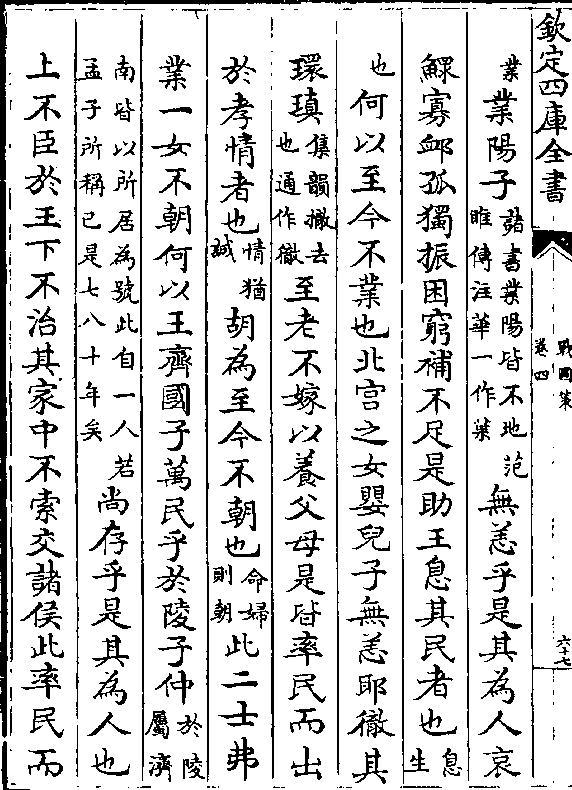 欽定四庫全書
戰國策
卷四
六十七
業業陽子諸書業陽皆不地范睢傳注華一作葉無恙乎是其為人哀
鰥寡䘏孤獨振困窮補不足是助王息其民者也息生
也何以至今不業也北宫之女嬰兒子無恙耶徹其
環瑱集韻撤去也通作徹至老不嫁以養父母是皆率民而出
於孝情者也情猶誠胡為至今不朝也命婦則朝此二士弗
業一女不朝何以王齊國子萬民乎於陵子仲於陵屬濟
南皆以所居為號此自一人若孟子所稱已是七八十年矣尚存乎是其為人也
上不臣於王下不治其家中不索交諸侯此率民而